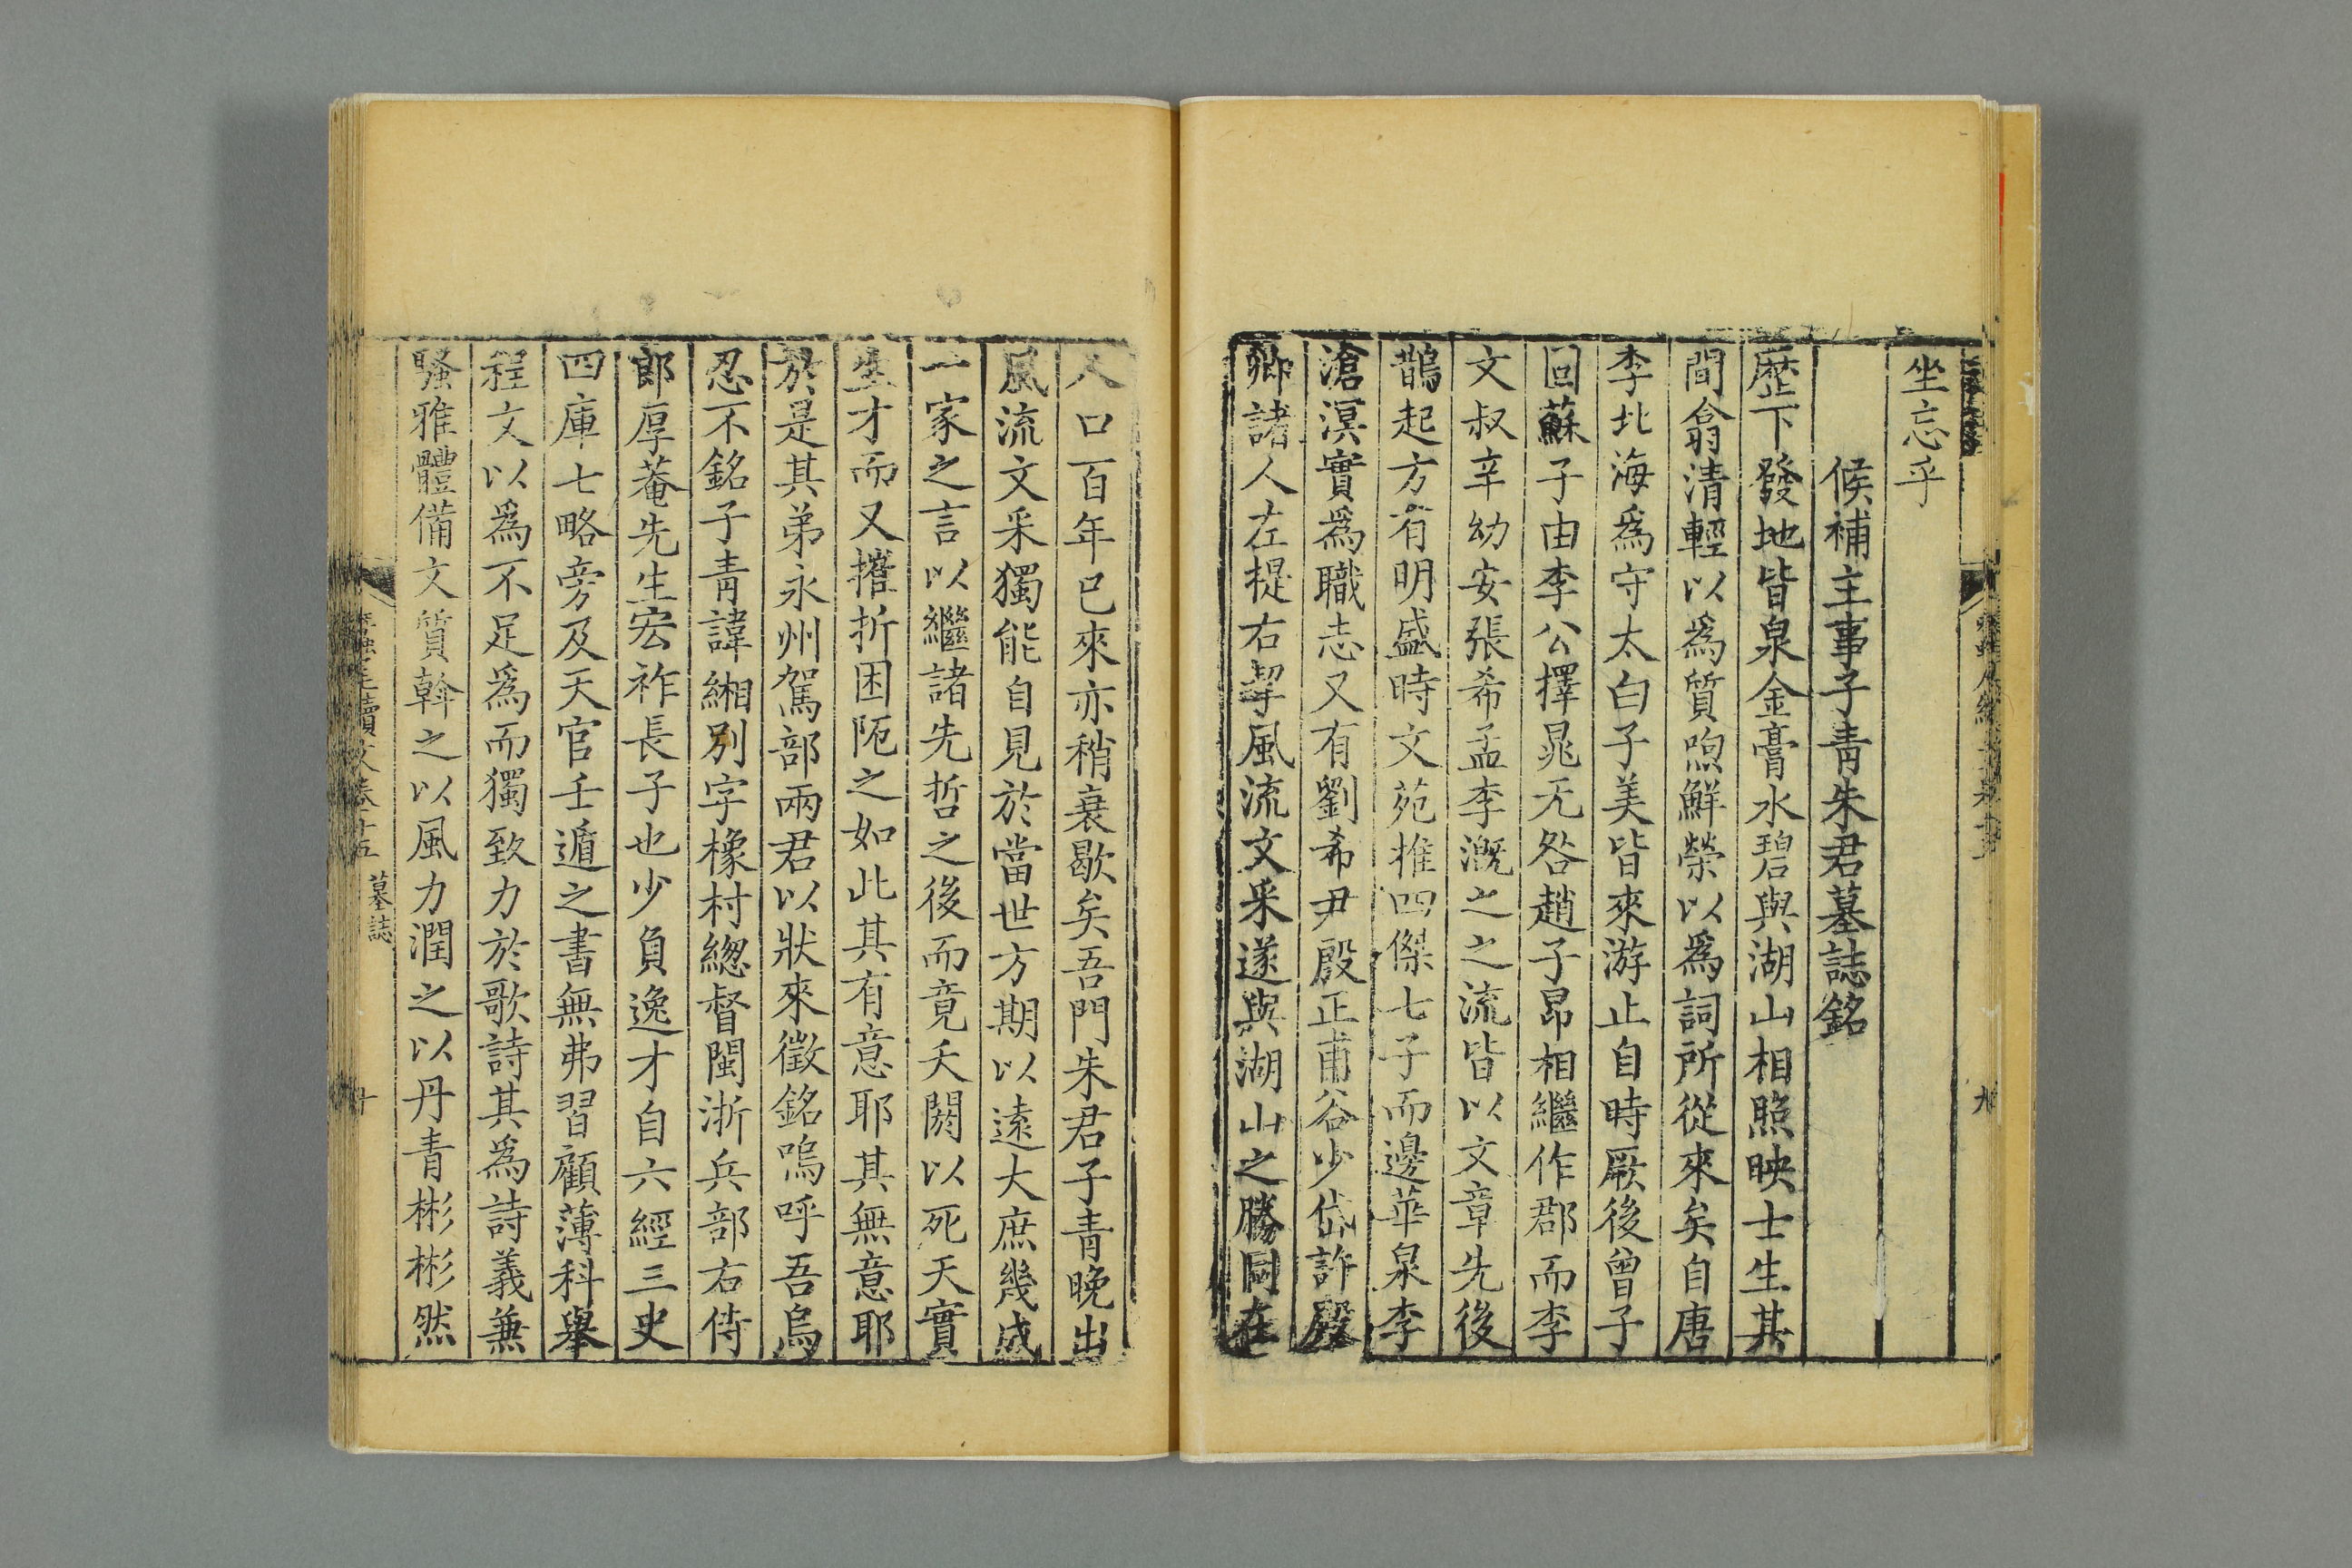 坐忘乎
候補主事子青朱君墓誌銘
歴下發地皆泉金膏水碧與湖山相照映士生其
間翕清輕以爲質煦鮮榮以爲詞所從來矣自唐
李北海爲守太白子美皆來游止自時厥後曾子
回蘇子由李公擇晁无咎趙子昂相繼作郡而李
文叔辛幼安張希孟李溉之之流皆以文章先後
鵲起方有明盛時文苑推四傑七子而邊華泉李
滄溟實爲職志又有劉希尹殷正甫谷少岱許殿
卿諸人左提右挈風流文采遂與湖山之勝同在
人口百年已來亦稍衰歇矣吾門朱君子青晚出
風流文采獨能自見於當世方期以遠大庶幾成
一家之言以繼諸先哲之後而竟夭閼以死天實
生才而又摧折困阨之如此其有意耶其無意耶
於是其弟永州駕部兩君以狀來徵銘嗚呼吾烏
忍不銘子青諱緗別字橡村總督閩浙兵部右侍
郎厚菴先生宏祚長子也少負逸才自六經三史
四庫七略旁及天官壬遁之書無弗習顧薄科舉
程文以爲不足爲而獨致力於歌詩其爲詩義兼
騷雅體備文質斡之以風力潤之以丹青彬彬然
蠶尾續文卷十五 墓誌 十